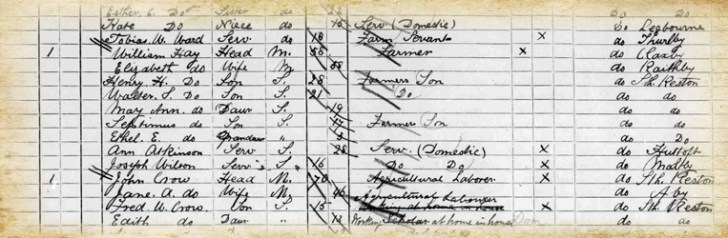 Esther E. Do Sister do 22 do do
Kate Do Niece do 15 Serv (Domestic) do Legbourne
Tobias W. Ward Serv. do 18 Farm Servant x do Thurlby
1 William Hay Head M. 58 Farmer x do Claxby
Elizabeth do Wife M. 58 do Raithby
Henry H. Do Son S. 28 Farmers Son do Sth. Reston
Walter S. Do Son S. 21 Do do do
May Ann. do Daur S. 19 do do
Septimus do Son S. 17 Farmer Son do do
Ethel E do Grandaur " 5 do Do
Ann Atkinson Serv. S. 28 Serv. (Domestic) x do Huttoft
Joseph Wilson Serv. S. 16 Do Do x do
1 John Crow Head M. 70 Agricultural Laborer x do Sth. Reston
Jane A. do Wife M. do Aby
Fred W. Crow Son S. 15 Agricultural Laborer x do Sth Reston
Edith do Daur " 13 Scholar at home do do